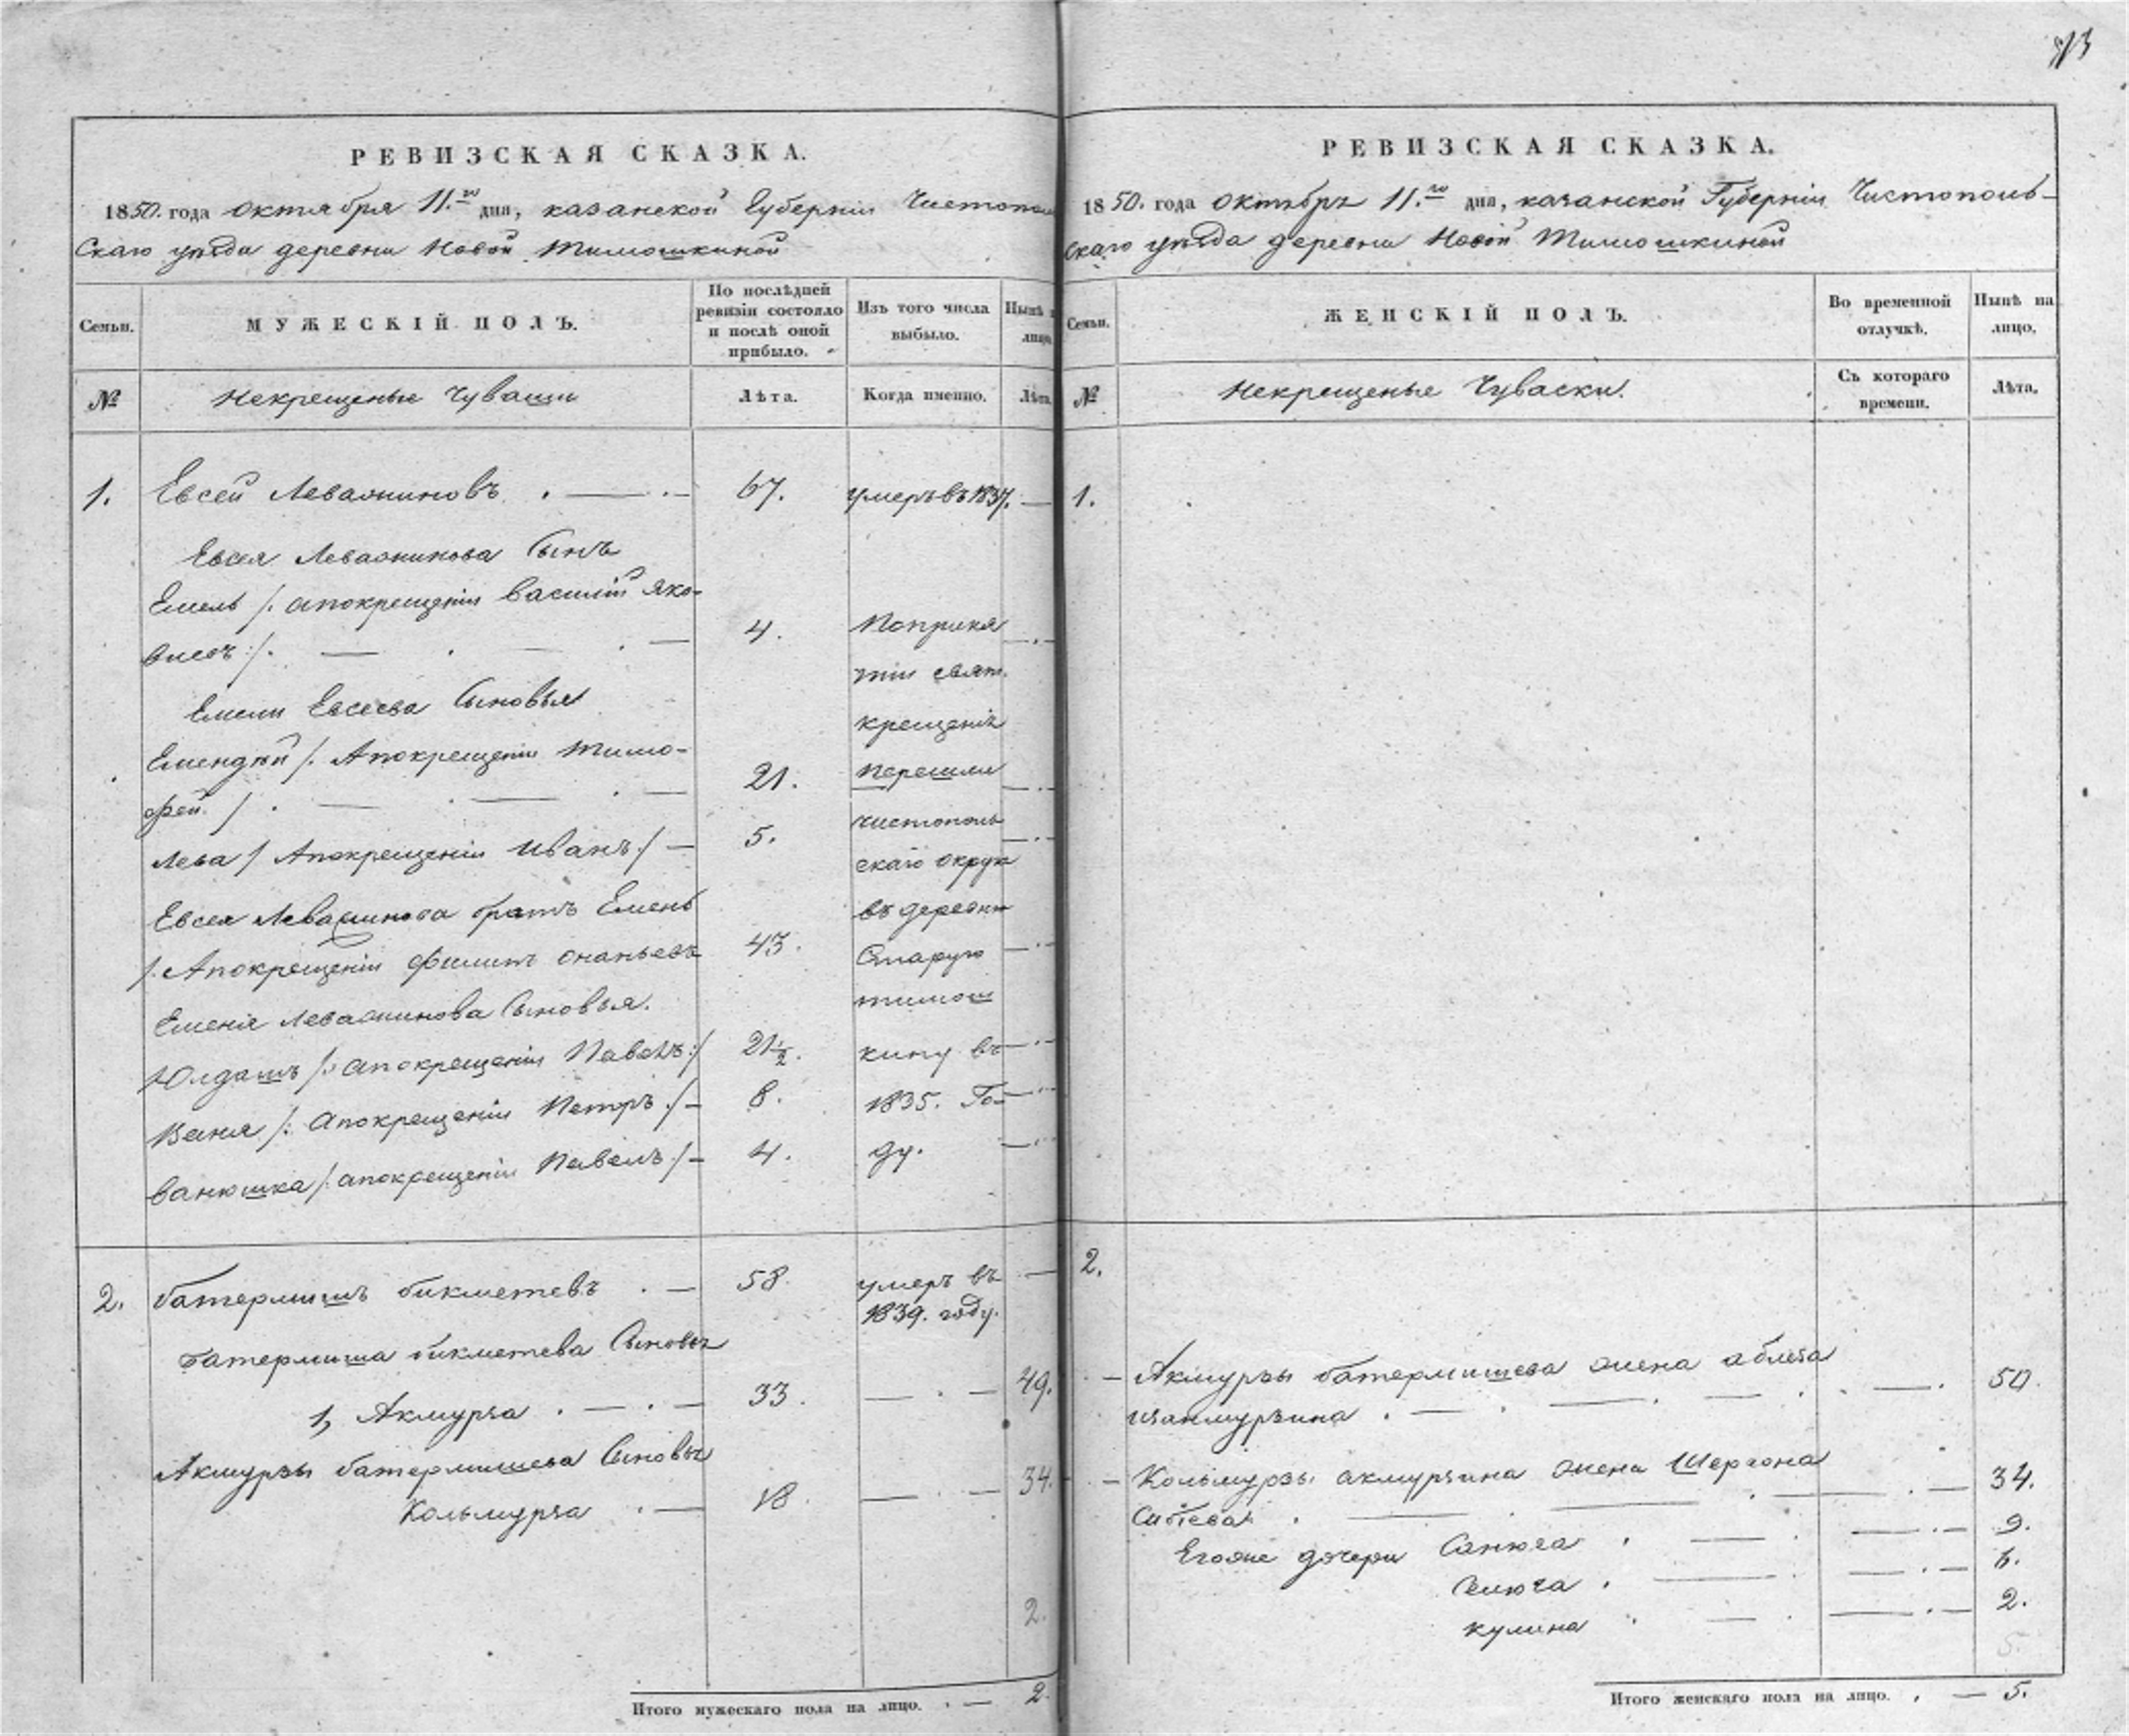 РЕВИЗСКАЯ СКАЗКА.
1850. года октября 11.го дня, казанской Губернiи Чистополь
Скаго уѣзда деревни Новой Тимошкиной
Семьи.
МУЖЕСКIЙ ПОЛЪ.
По послѣдней ревизiи состояло и послѣ оной прибыло.
Изъ того числа выбыло.
Нынѣ на лицо.
№
Некрещеные Чуваши
Лѣта.
Когда именно.
Лѣта.
1. Евсей Левашиновъ . — 67. умеръ въ 1837. —
Евсея Левашинова Сынъ
Емель /: апокрещенiи Василiй Яко-
влевъ :/. — 4. Поприня
тiи свят.
Емели Евсеева Сыновья
крещенiя
Емендѣй /: Апокрещенiи Тимо-
фей. / . — 21. перешли
Лева / Апокрещенiи Иванъ / — 5. чистополь
скаго округа
Евсея Левашинова братъ Емень
въ деревню
/. Апокрещенiи Филипъ онаньевъ 43. Старую
Еменя Левашинова Сыновья. тимош
Юлдашъ /: апокрещенiи Павелъ :/ 21½. кину въ
Ваня /: апокрещенiи Петръ :/ — 8. 1835. Го-
ванюшка /: апокрещенiи Павелъ :/ — 4. ду.
2. батермишъ бикметевъ . — 58. умеръ въ —
1839. году.
батермиша бикметева Сыновья
1, Акмурза . — . — 33. — . — 49.
Акмурзы батермишева Сыновья
Кольмурза . — 18. — . — 34.
2.
Итого мужескаго пола на лицо. . — 2.
РЕВИЗСКАЯ СКАЗКА.
1850. года октябръ 11.го дня, казанской Губернiи Чистополь-
скаго уѣзда деревни Новой Тимошкиной
Семьи.
ЖЕНСКIЙ ПОЛЪ.
Во временной отлучкѣ.
Нынѣ на лицо.
№
Некрещеные Чуваски.
Съ котораго времени.
Лѣта.
1.
2.
— Акмурзы батермишева жена аблеза
изанмурзина . — . — . — . 50.
— Кольмурзы акмурзина жена Шерзона
Ситева . — . — 34.
Егоже дочери Санюга . — . — . — 9.
Селюга . — . — 6.
кулина . — . — . — 2.
5.
Итого женскаго пола на лицо. . — 5.